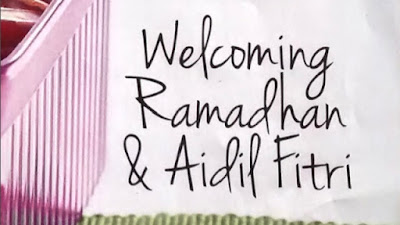 Welcoming
Ramadhan
& Aidil Fitri